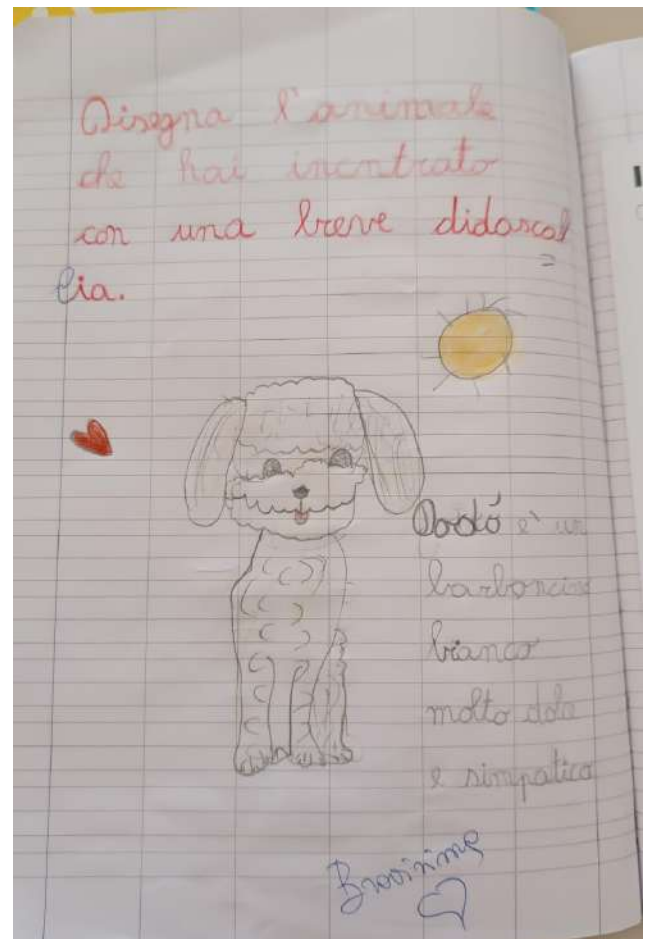 Disegna l'animale
che hai incontrato
con una breve didascal
=
lia.
è un
barboncino
bianco
molto dolce
e simpatico